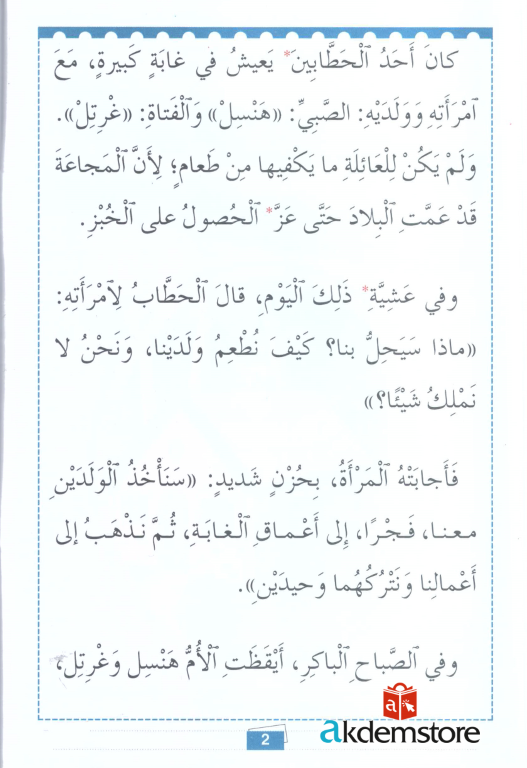 كانَ أَحَدُ ٱلْحَطَّابِينَ* يَعيشُ في غابَةٍ كَبيرةٍ، مَعَ
ٱمْرَأَتِهِ وَوَلَدَيْهِ: الصَّبِيِّ: «هَنْسِلْ» وَٱلْفَتاةِ: «غْرتِلْ».
وَلَمْ يَكُنْ لِلْعَائِلَةِ ما يَكْفِيها مِنْ طَعامٍ؛ لِأَنَّ ٱلْمَجاعَةَ
قَدْ عَمَّتِ ٱلْبِلادَ حَتَّى عَزَّ* ٱلْحُصولُ على ٱلْخُبْزِ.
وفي عَشِيَّةِ* ذَلِكَ ٱلْيَوْمِ، قالَ ٱلْحَطَّابُ لِٱمْرَأَتِهِ:
«ماذا سَيَحِلُّ بنا؟ كَيْفَ نُطْعِمُ وَلَدَيْنا، وَنَحْنُ لا
نَمْلِكُ شَيْئًا؟»
فَأَجابَتْهُ ٱلْمَرْأَةُ، بِحُزْنٍ شَديدٍ: «سَنَأْخُذُ ٱلْوَلَدَيْنِ
معنا، فَجْرًا، إِلى أَعْماقِ ٱلْغابَةِ، ثُمَّ نَذْهَبُ إلى
أَعْمالِنا وَنَتْرُكُهُما وَحيدَيْنِ».
وفي ٱلصَّباحِ ٱلْباكِرِ، أَيْقَظَتِ ٱلْأُمُّ هَنْسِل وَغْرتِل،
2
akdemstore